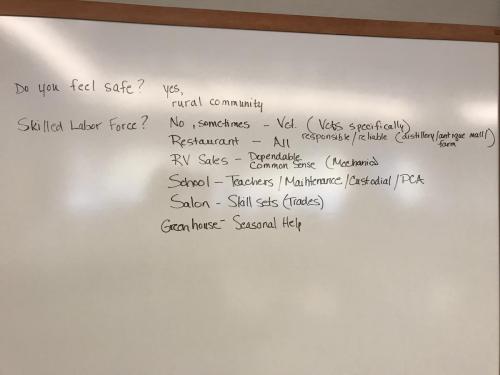 Do you feel safe? yes,
rural community
Skilled Labor Force? No, sometimes - Vet. (Vets specifically)
Restaurant - All responsible/reliable (distillery/antique mall/
farm)
RV Sales - Dependable
Common Sense (Mechanic)
School - Teachers/Maintenance/Custodial/PCA
Salon - Skill sets (Trades)
Greenhouse - Seasonal Help